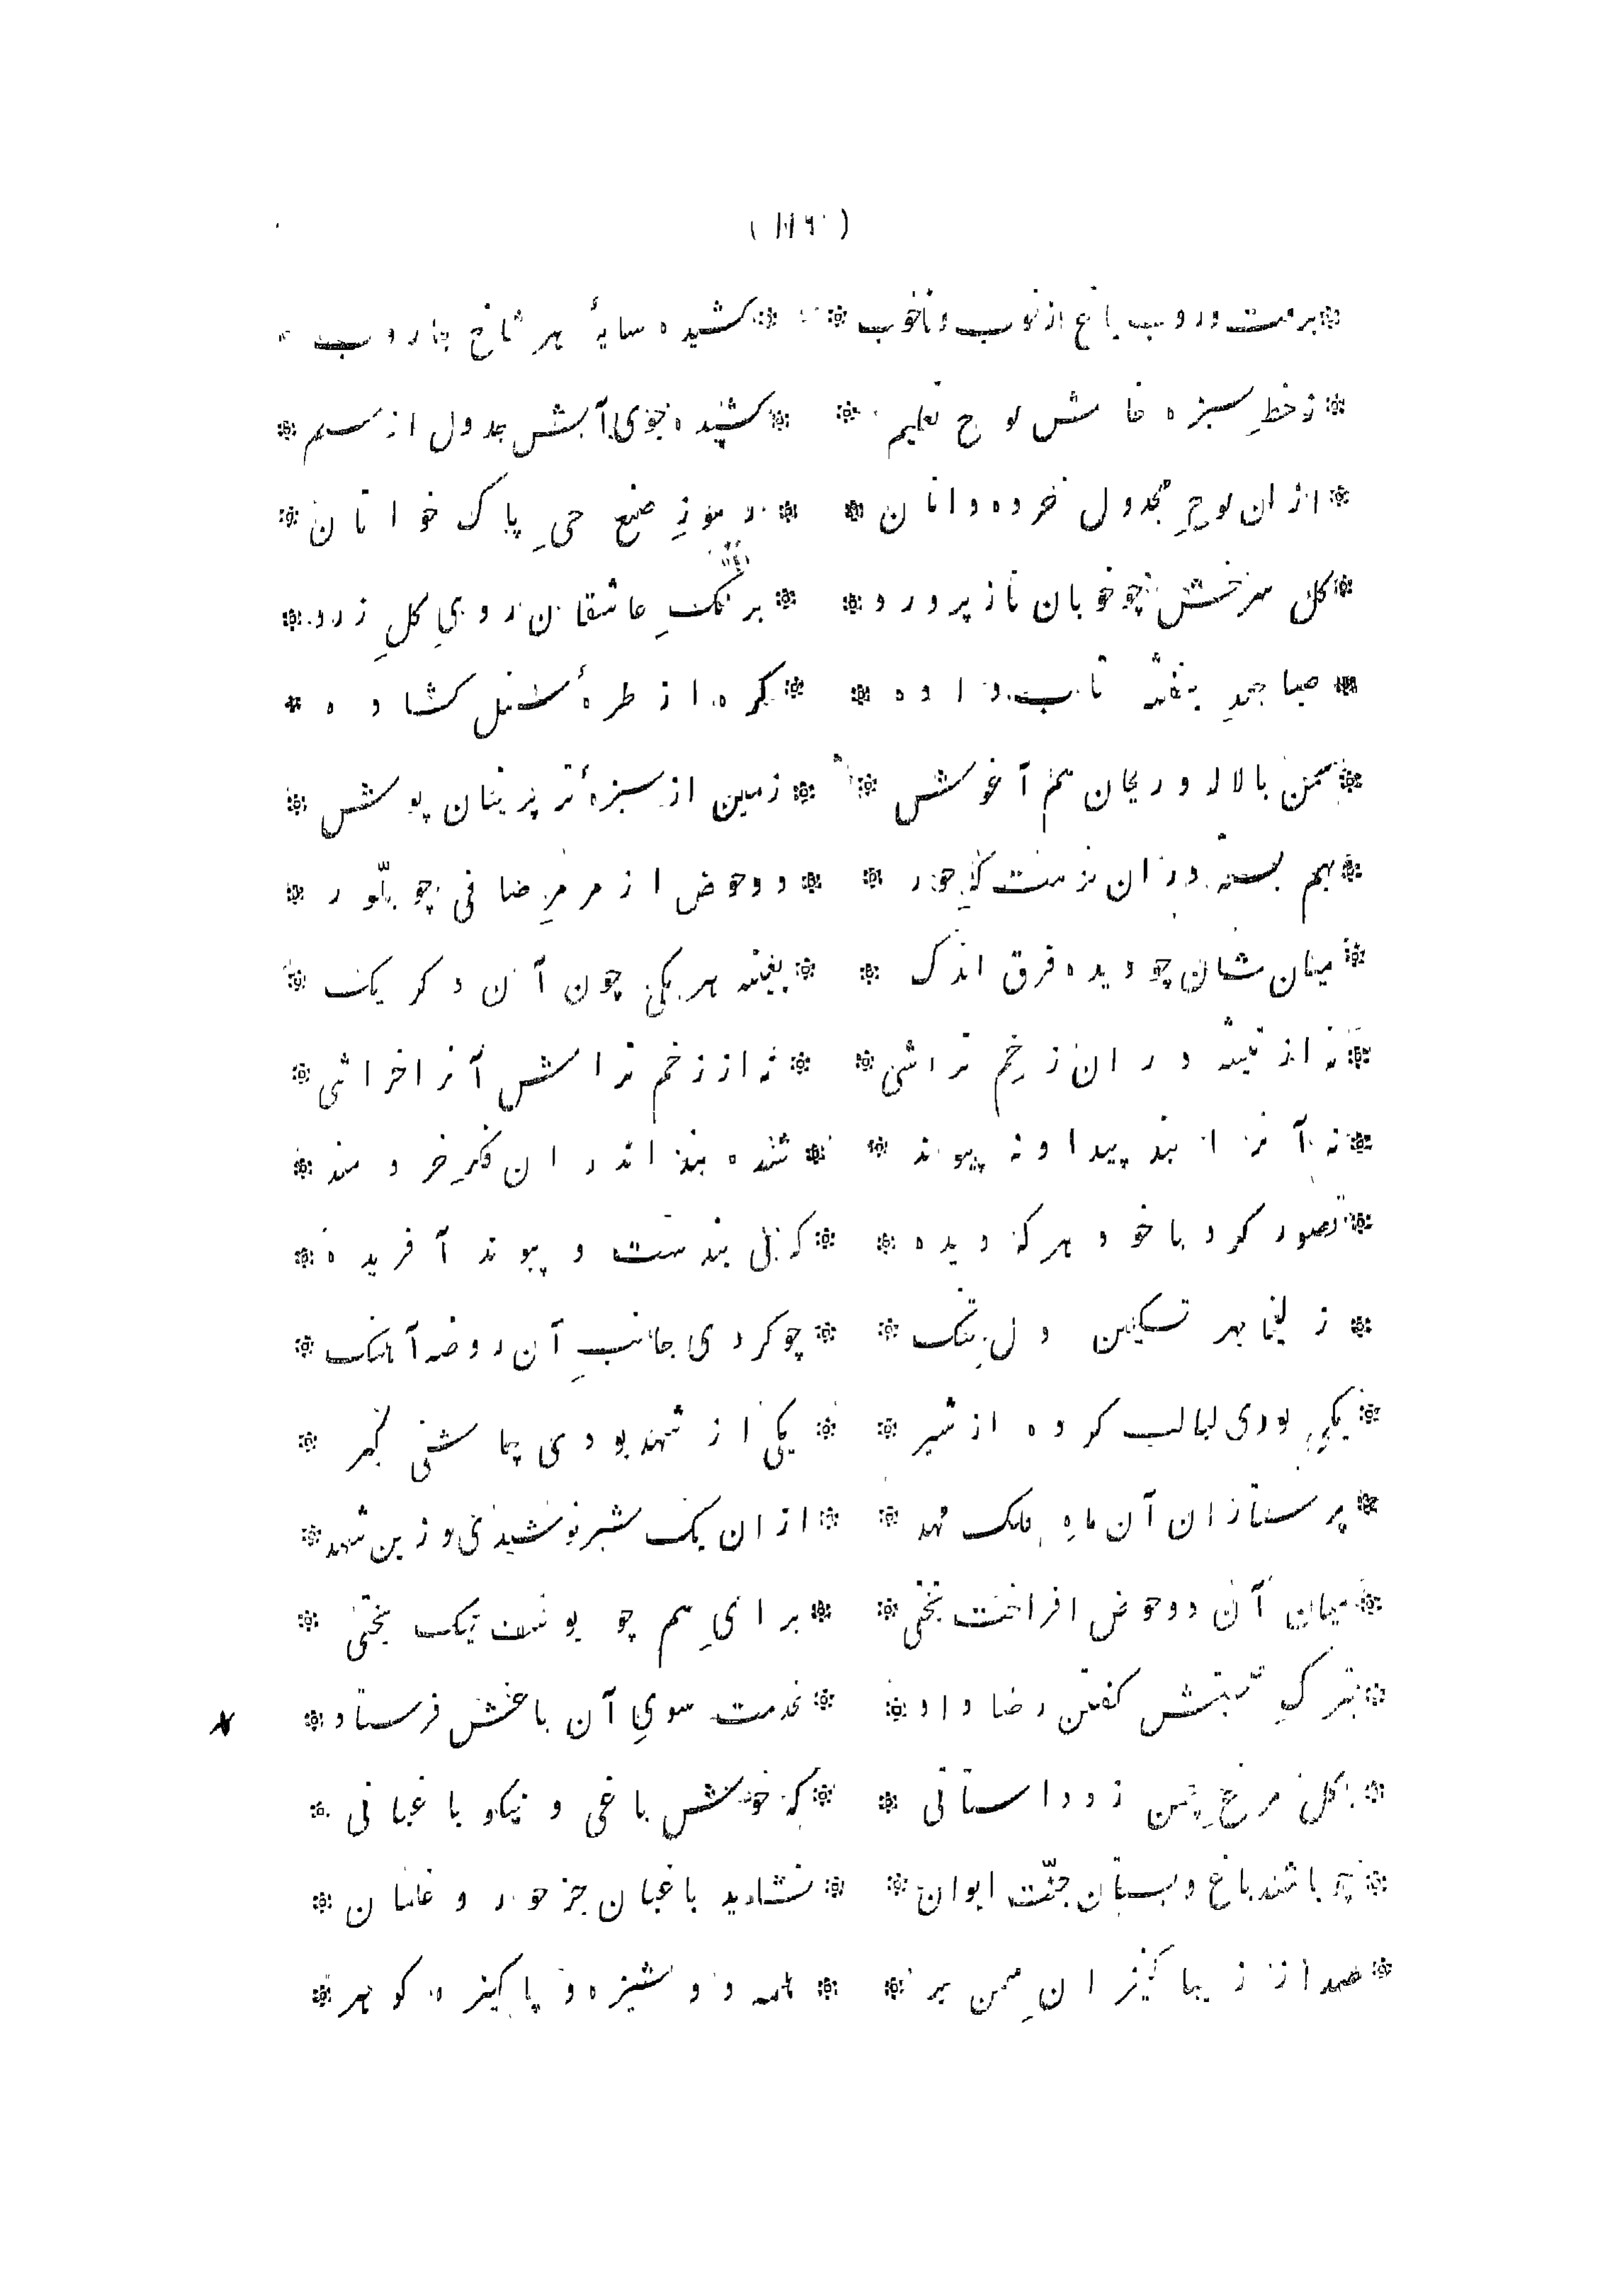 (۱۱۶)
* برفت و روب باغ از خوب و ناخوب * کشیده سایهٔ هر شاخ جاروب *
* ز خطِ سبزه خاکش لوح تعلیم * کشیده جوی آبش جدول از سیم *
* ازان لوحِ مجدول خرده دانان * رموزِ صنع حیِ پاک خوانان *
* کل سرخش چو خوبان نازپرورد * برنکِ عاشقان رویِ کلِ زرد *
* صبا جعدِ بنفشه تاب داده * کره از طرهٔ سنبل کشاده *
* سمن با لاله و ریحان هم آغوش * زمین از سبزهٔ تر پرنیان پوش *
* بهم بسته دران نزهت کهِ حور * دو حوض از مرمرِ صافی چو بلّور *
* میان شان چو دیده فرق اندک * بعینه هر یکی چون آن دکر یک *
* نه از تیشه دران زخمِ تراشی * نه از زخم تراش آنرا خراشی *
* نه آنرا بند پیدا و نه پیوند * شده بند اندران فکرِ خردمند *
* تصور کرد با خود هر که دیده * که بی بندست و پیوند آفریده *
* زلیخا بهر تسکین دل تنک * چو کردی جانبِ آن روضه آهنک *
* یکی بودی لبالب کرده از شیر * یکی از شهد بودی چاشنی کیر *
* پرستاران آن ماهِ فلک مهد * ازان یک شیر نوشیدی وزین شهد *
* میان آن دو حوض افراخت تختی * برایِ هم چو یوسف نیک بختی *
* بترکِ صحبتش کفتن رضا داد * خدمت سویِ آن باغش فرستاد *
* بکل مرغِ چمن زد داستانی * که خوش باغی و نیکو باغبانی *
* چو باشد باغ و بستان جنّت ایوان * نشاید باغبان جز حور و غلمان *
* صد از زیبا کنیزانِ سمن بر * همه دوشیزه و پاکیزه کوهر *